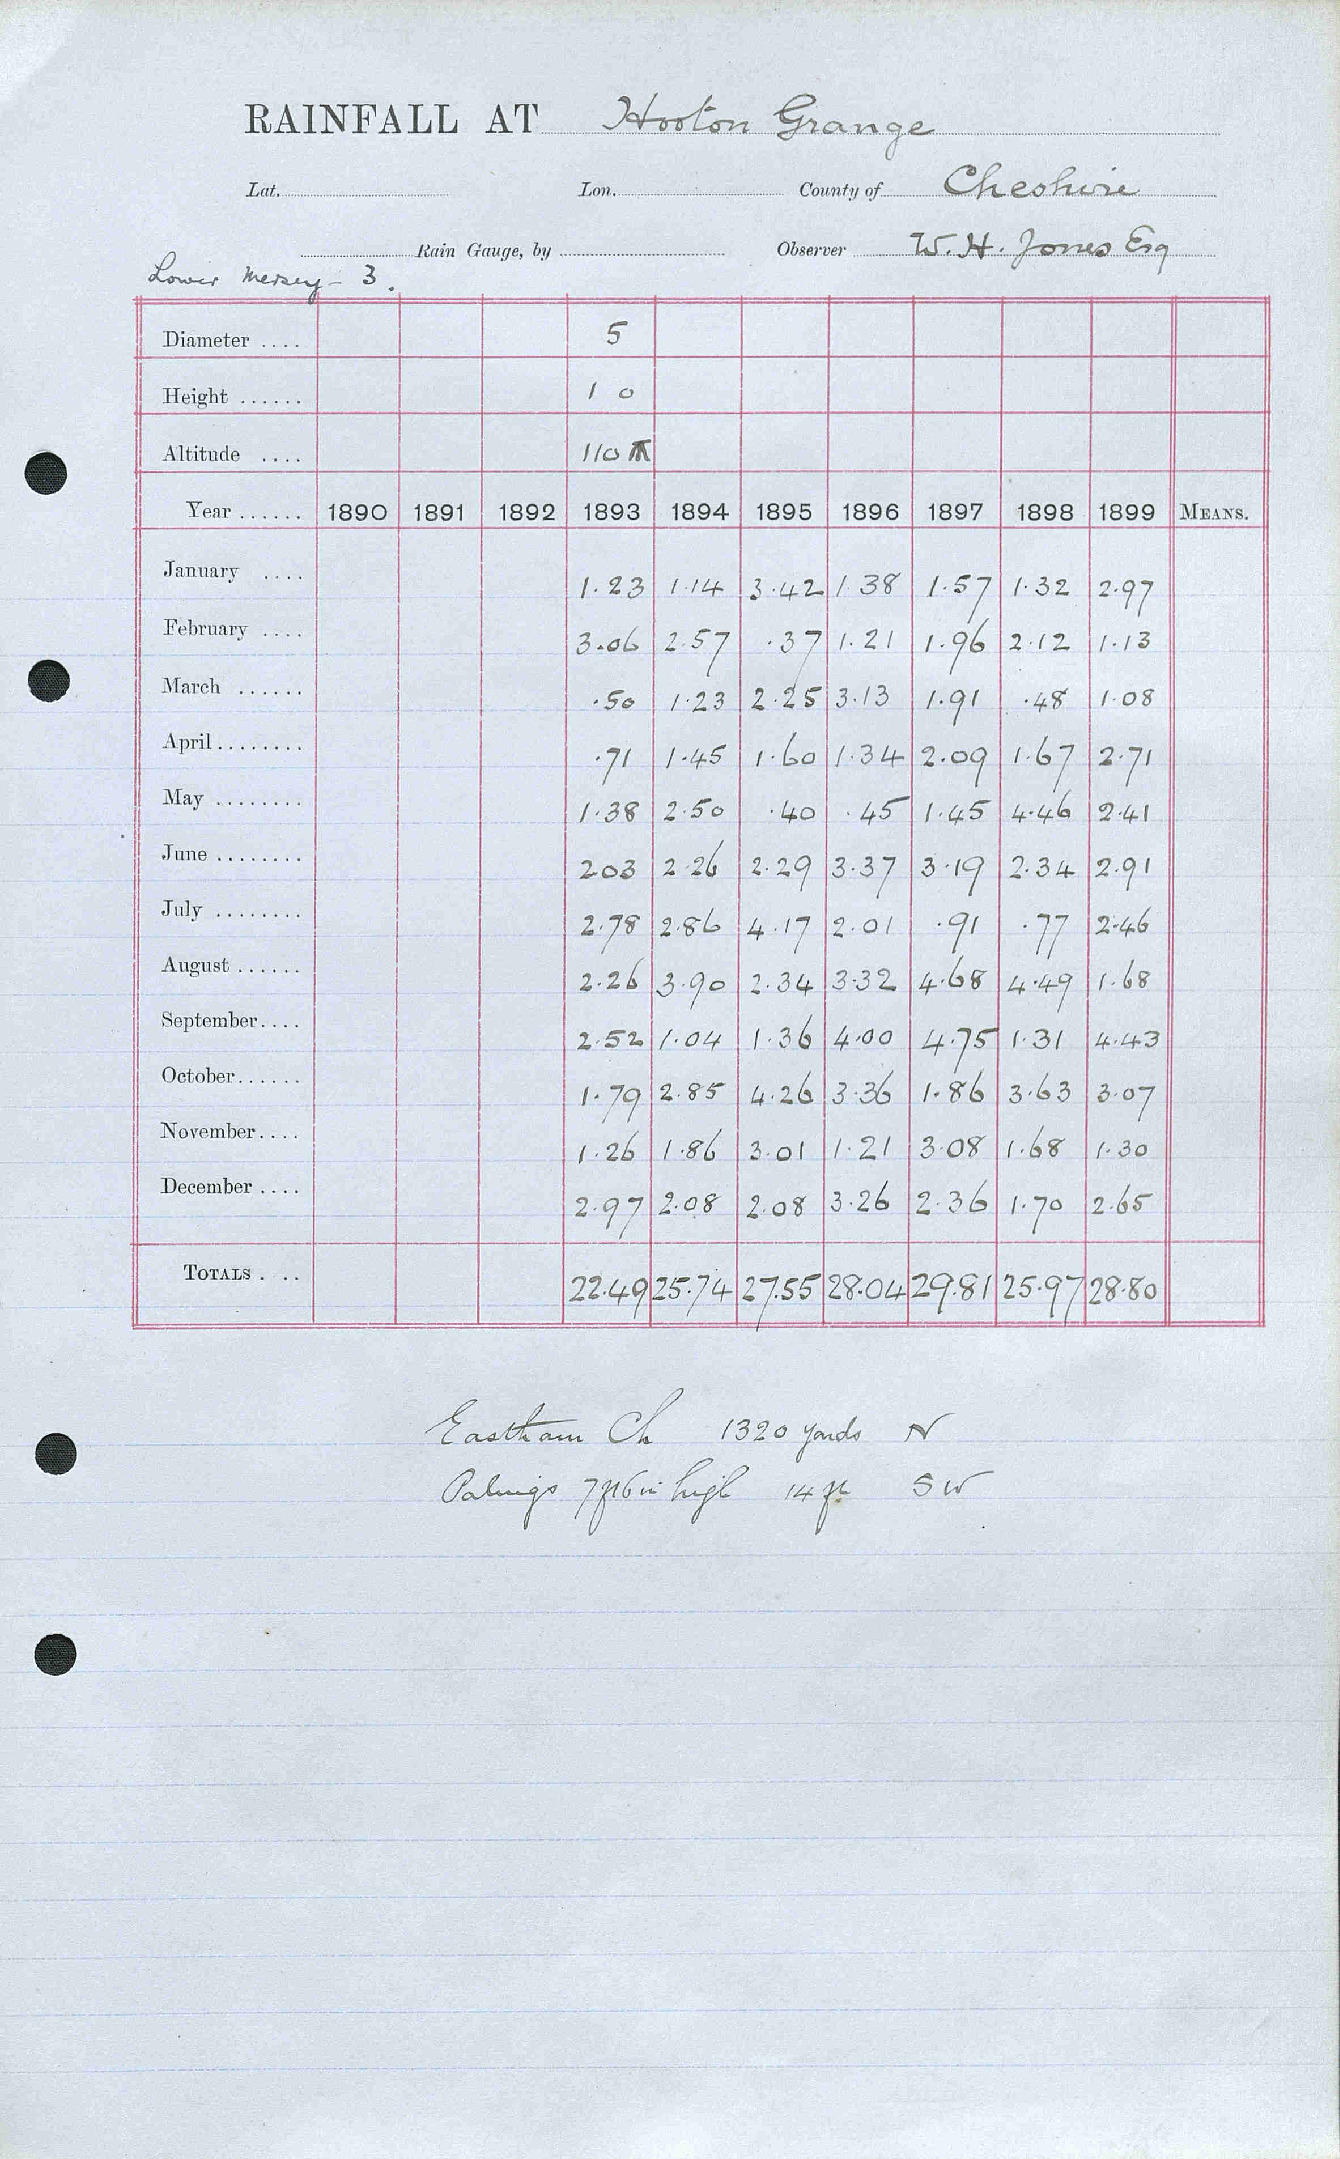 RAINFALL AT Hooton Grange
Lat. Lon. County of Cheshire
Rain Gauge, by Observer W. H. Jones Esq
Lower Mersey - 3.
Diameter .... 5
Height ...... 1 0
Altitude .... 110
Year ...... 1890 1891 1892 1893 1894 1895 1896 1897 1898 1899 MEANS.
January .... 1.23 1.14 3.42 1.38 1.57 1.32 2.97
February .... 3.06 2.57 .37 1.21 1.96 2.12 1.13
March ...... .50 1.23 2.25 3.13 1.91 .48 1.08
April........ .71 1.45 1.60 1.34 2.09 1.67 2.71
May ........ 1.38 2.50 .40 .45 1.45 4.46 2.41
June ........ 203 2.26 2.29 3.37 3.19 2.34 2.91
July ........ 2.78 2.86 4.17 2.01 .91 .77 2.46
August ...... 2.26 3.90 2.34 3.32 4.68 4.49 1.68
September.... 2.52 1.04 1.36 4.00 4.75 1.31 4.43
October...... 1.79 2.85 4.26 3.36 1.86 3.63 3.07
November.... 1.26 1.86 3.01 1.21 3.08 1.68 1.30
December .... 2.97 2.08 2.08 3.26 2.36 1.70 2.65
TOTALS . .. 22.49 25.74 27.55 28.04 29.81 25.97 28.80
Eastham Ch 1320 yards N
Palings 7ft6in high 14 ft SW